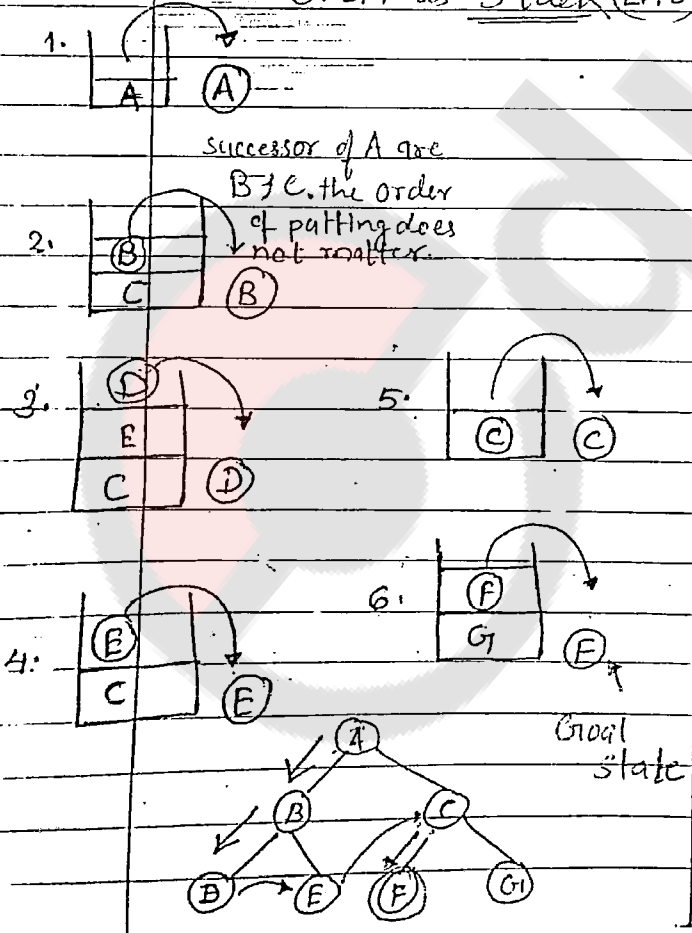 Stack (LIFO)
1.
A
A
successor of A are
B & C. the order
of putting does
not matter.
2.
B
C
B
3.
D
E
C
D
5.
C
C
4.
E
C
E
6.
F
G
E
Goal
state
A
B
C
B
E
F
G